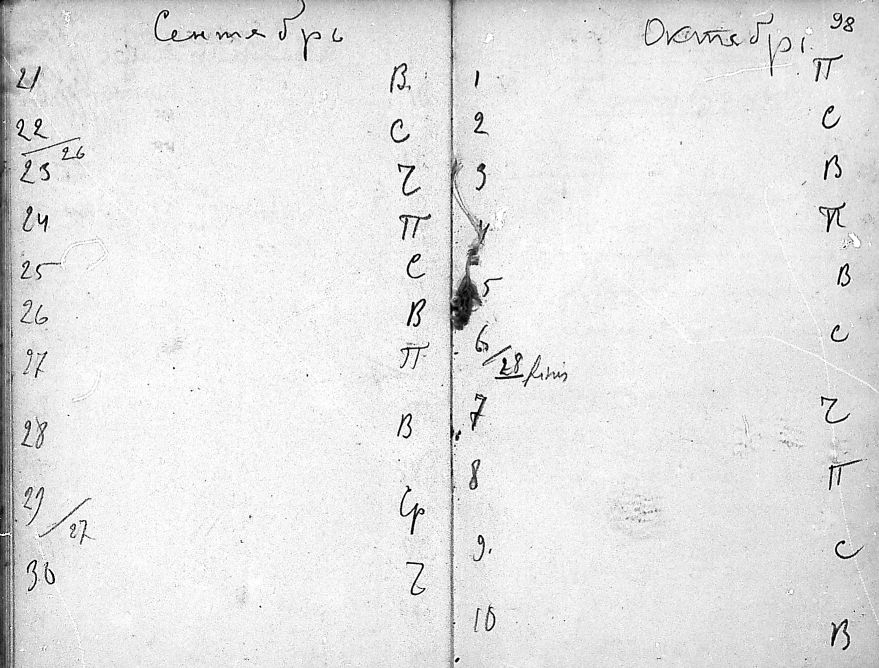 Сентябрь
21 В.
22 С
26
23 Ч
24 П
25 С
26 В
27 П
28 В
29 Ср
27
30 Ч
98
Октябрь
1 П
2 С
3 В
4 П
5 В
6 С
28 finis
7 Ч
8 П
9. С
10 В